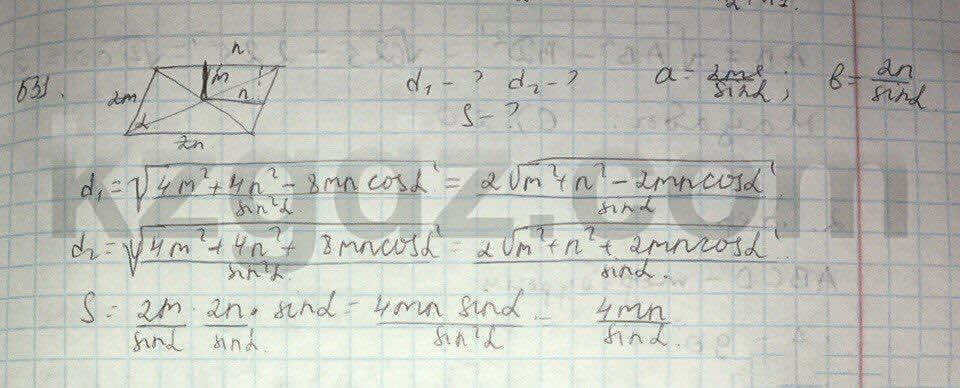 631.
n
m
n
2m
α
2n
d₁ - ? d₂ - ? a = 2m/sinα; b = 2n/sinα
S - ?
d₁ = √(4m² + 4n² - 8mn cosα / sin²α) = 2√(m² + n² - 2mn cosα) / sinα
d₂ = √(4m² + 4n² + 8mn cosα / sin²α) = 2√(m² + n² + 2mn cosα) / sinα.
S = 2m/sinα · 2n/sinα · sinα = 4mn sinα / sin²α = 4mn/sinα.
kzgdz.com